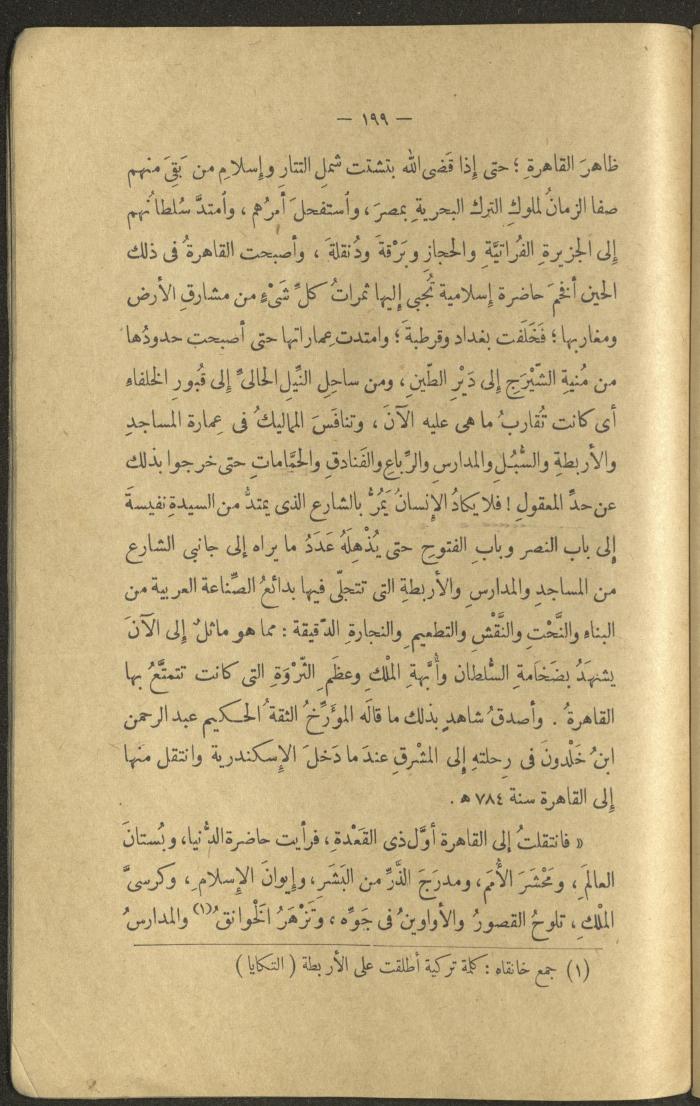 — ١٩٩ —
ظاهرَ القاهرةِ ؛ حتى إِذا قَضى الله بتشتت شملِ التتارِ وإِسلامِ من بَقِىَ منهم
صفا الزمانُ لملوكِ الترك البحريةِ بمصرَ ، وأستفحلَ أمرُهم ، وأمتدَّ سُلطانُهم
إِلى الجزيرةِ الفُراتيَّةِ والحجازِ وبَرْقةَ ودُنقلةَ ، وأصبحت القاهرةُ فى ذلك
الحين أنفخمَ حاضرة إِسلامية تُجبى إِليها ثمراتُ كلِّ شَىْءٍ من مشارقِ الأرض
ومغاربها ؛ فَخَلَفت بغداد وقرطبةَ ؛ وامتدت عِماراتها حتى أصبحت حدودُها
من مُنيةِ الشِّيْرَجِ إِلى دَيْرِ الطِّينِ ، ومن ساحلِ النِّيلِ الحالىِّ إِلى قُبورِ الخلفاءِ
أى كانت تُقاربُ ما هى عليه الآنَ ، وتنافَسَ المماليكُ فى عِمارة المساجدِ
والأربطةِ والسُّبُلِ والمدارسِ والرِّباعِ والفَنادقِ والحمَّاماتِ حتى خرجوا بذلك
عن حدِّ المعقولِ ! فلا يكادُ الإِنسانُ يَمُرُّ بالشارعِ الذى يمتدُّ من السيدةِ نفيسةَ
إِلى باب النصر وبابِ الفتوحِ حتى يُذْهِلَهُ عَدَدُ ما يراه إلى جانبى الشارع
من المساجدِ والمدارسِ والأربطةِ التى تتجلَّى فيها بدائعُ الصِّناعة العربية من
البناءِ والنَّحْتِ والنَّقْشِ والتطعيمِ والنجارةِ الدَّقيقة : مما هو ماثلٌ إِلى الآنَ
يشهَدُ بضَخَامةِ السُّلطان وأُبَّهةِ المُلْكِ وعظَمِ الثَّرْوَةِ التى كانت تتمتَّعُ بها
القاهرةُ . وأصدقُ شاهدٍ بذلك ما قالَه المؤَرِّخُ الثقةُ الحكيم عبد الرحمن
ابنُ خَلْدونَ فى رِحلتهِ إِلى المشْرقِ عندَ ما دَخلَ الإِسكندرية وانتقل منها
إِلى القاهرة سنة ٧٨٤ ه .
« فانتقلتُ إِلى القاهرة أوَّل ذى القَعْدةِ ، فرأيت حاضرة الدُّنيا ، وبُستانَ
العالمَ ، ومَحْشَرَ الأُمَمِ ، ومدرَجَ الذَّرِّ من البَشَرِ ، وإِيوانَ الإِسلامِ ، وكرسىَّ
المُلْكِ ، تلوحُ القصورُ والأواوينُ فى جَوِّه ، وتَزْهَرُ الخَوانقُ(١) والمدارسُ
(١) جمع خانقاه : كلمة تركية أطلقت على الأربطة ( التكايا )